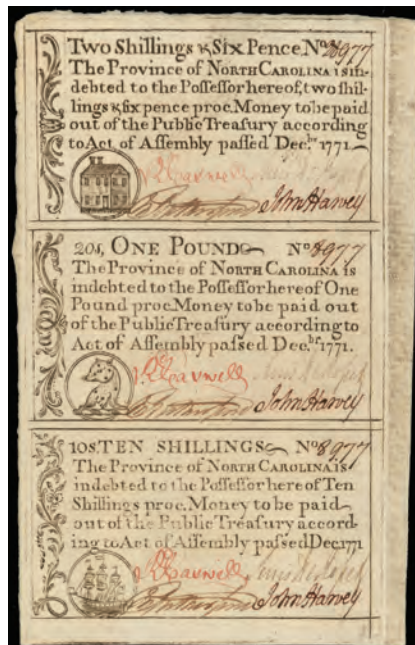 Two Shillings & Six Pence. No 8977
The Province of NORTH CAROLINA is in-
debted to the Poſſeſſor hereof, two ſhil-
lings & ſix pence proc. Money to be paid
out of the Public Treaſury according
to Act of Aſſembly paſſed Dec.br 1771.
R Caswell
John Harvey
20s, ONE POUND No 8977
The Province of NORTH CAROLINA is
indebted to the Poſſeſſor hereof One
Pound proc. Money to be paid out
of the Public Treaſury according to
Act of Aſſembly paſſed Dec.br 1771.
R Caswell
John Harvey
10s. TEN SHILLINGS No 8977
The Province of NORTH CAROLINA is
indebted to the Poſſeſſor here of Ten
Shillings proc. Money to be paid
out of the Public Treaſury accord-
ing to Act of Aſſembly paſſed Dec 1771
R Caswell
John Harvey